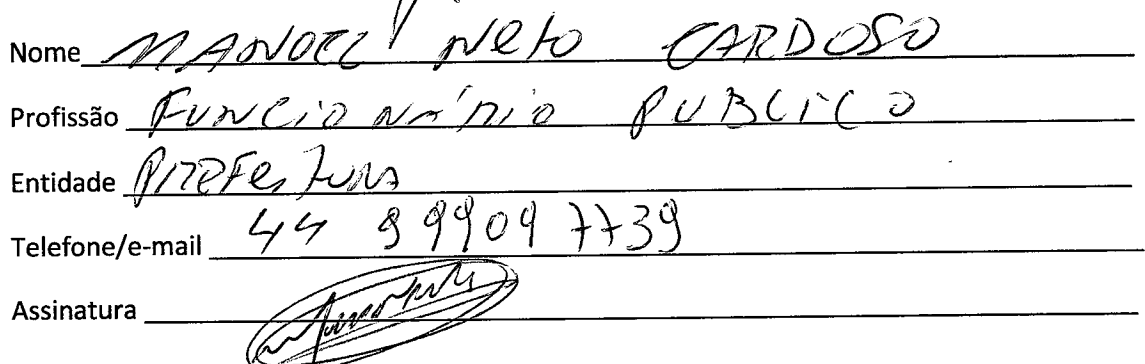 Nome MANOEL Neto CARDOSO
Profissão FUNCIONÁRIO PUBLICO
Entidade PREFEITURA
Telefone/e-mail 44 9 9909 7739
Assinatura